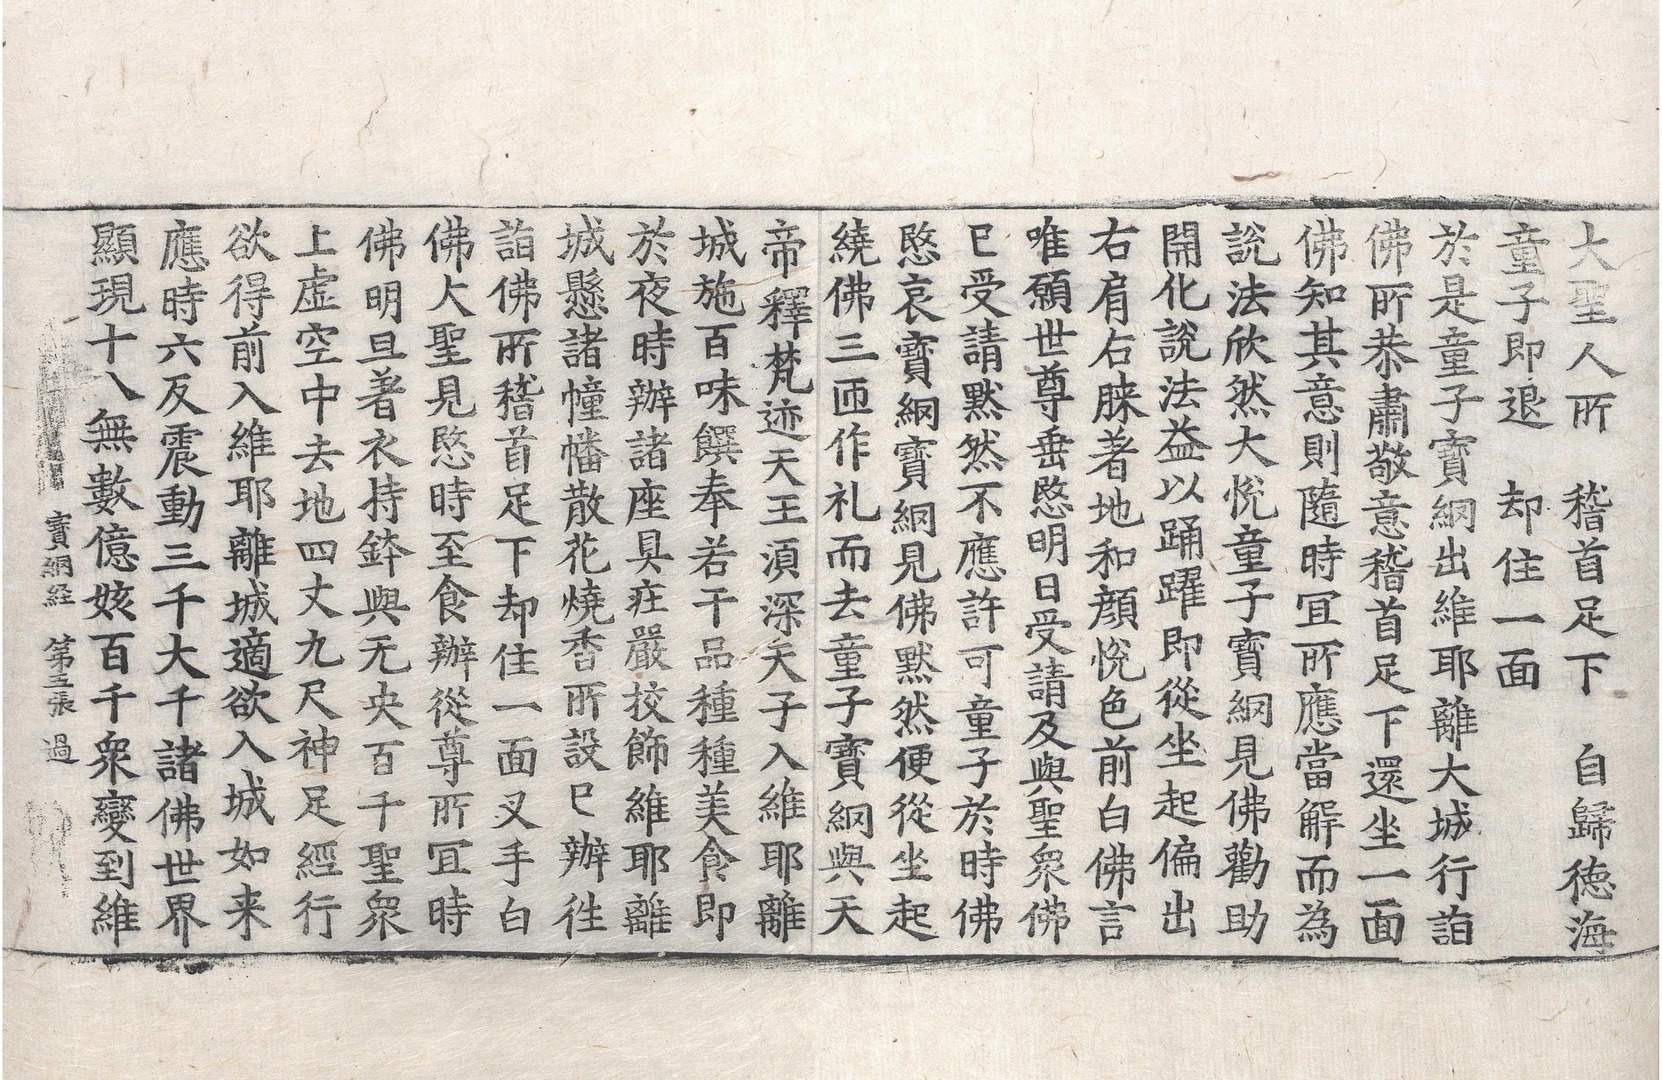 大聖人所　稽首足下　自歸德海
童子即退　却住一面
於是童子寶網出維耶離大城行詣
佛所恭肅敬意稽首足下還坐一面
佛知其意則隨時冝所應當解而為
說法欣然大悅童子寶網見佛勸助
開化說法益以踊躍即從坐起偏出
右肩右膝著地和顏悅色前白佛言
唯願世尊垂愍明日受請及與聖衆佛
已受請默然不應許可童子於時佛
愍哀寶網寶網見佛默然便從坐起
繞佛三匝作礼而去童子寶網與天
帝釋梵迹天王湏深天子入維耶離
城施百味饌奉若干品種種美食即
於夜時辦諸座具庄嚴校飾維耶離
城懸諸幢幡散花燒香所設已辦徃
詣佛所稽首足下却住一面叉手白
佛大聖見愍時至食辦從尊所冝時
佛明旦著衣持鉢與无央百千聖衆
上虛空中去地四丈九尺神足經行
欲得前入維耶離城適欲入城如来
應時六反震動三千大千諸佛世界
顯現十八無數億姟百千衆變到維
寶網経　第五張　過